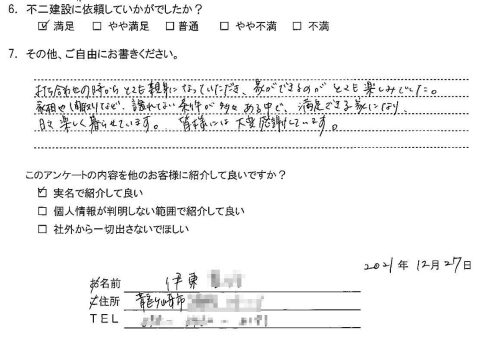 6. 不二建設に依頼していかがでしたか？
☑ 満足 □ やや満足 □ 普通 □ やや不満 □ 不満
7. その他、ご自由にお書きください。
打ち合わせの時からとても親身になっていただき、家ができるのがとても楽しみでした。
費用や間取りなど、譲れない条件が多々ある中で、満足できる家になり
日々楽しく暮らせています。皆様には大変感謝しています。
このアンケートの内容を他のお客様に紹介して良いですか？
☑ 実名で紹介して良い
□ 個人情報が判明しない範囲で紹介して良い
□ 社外から一切出さないでほしい
2021年 12月 27日
お名前 伊東
ご住所 龍ヶ崎市
TEL